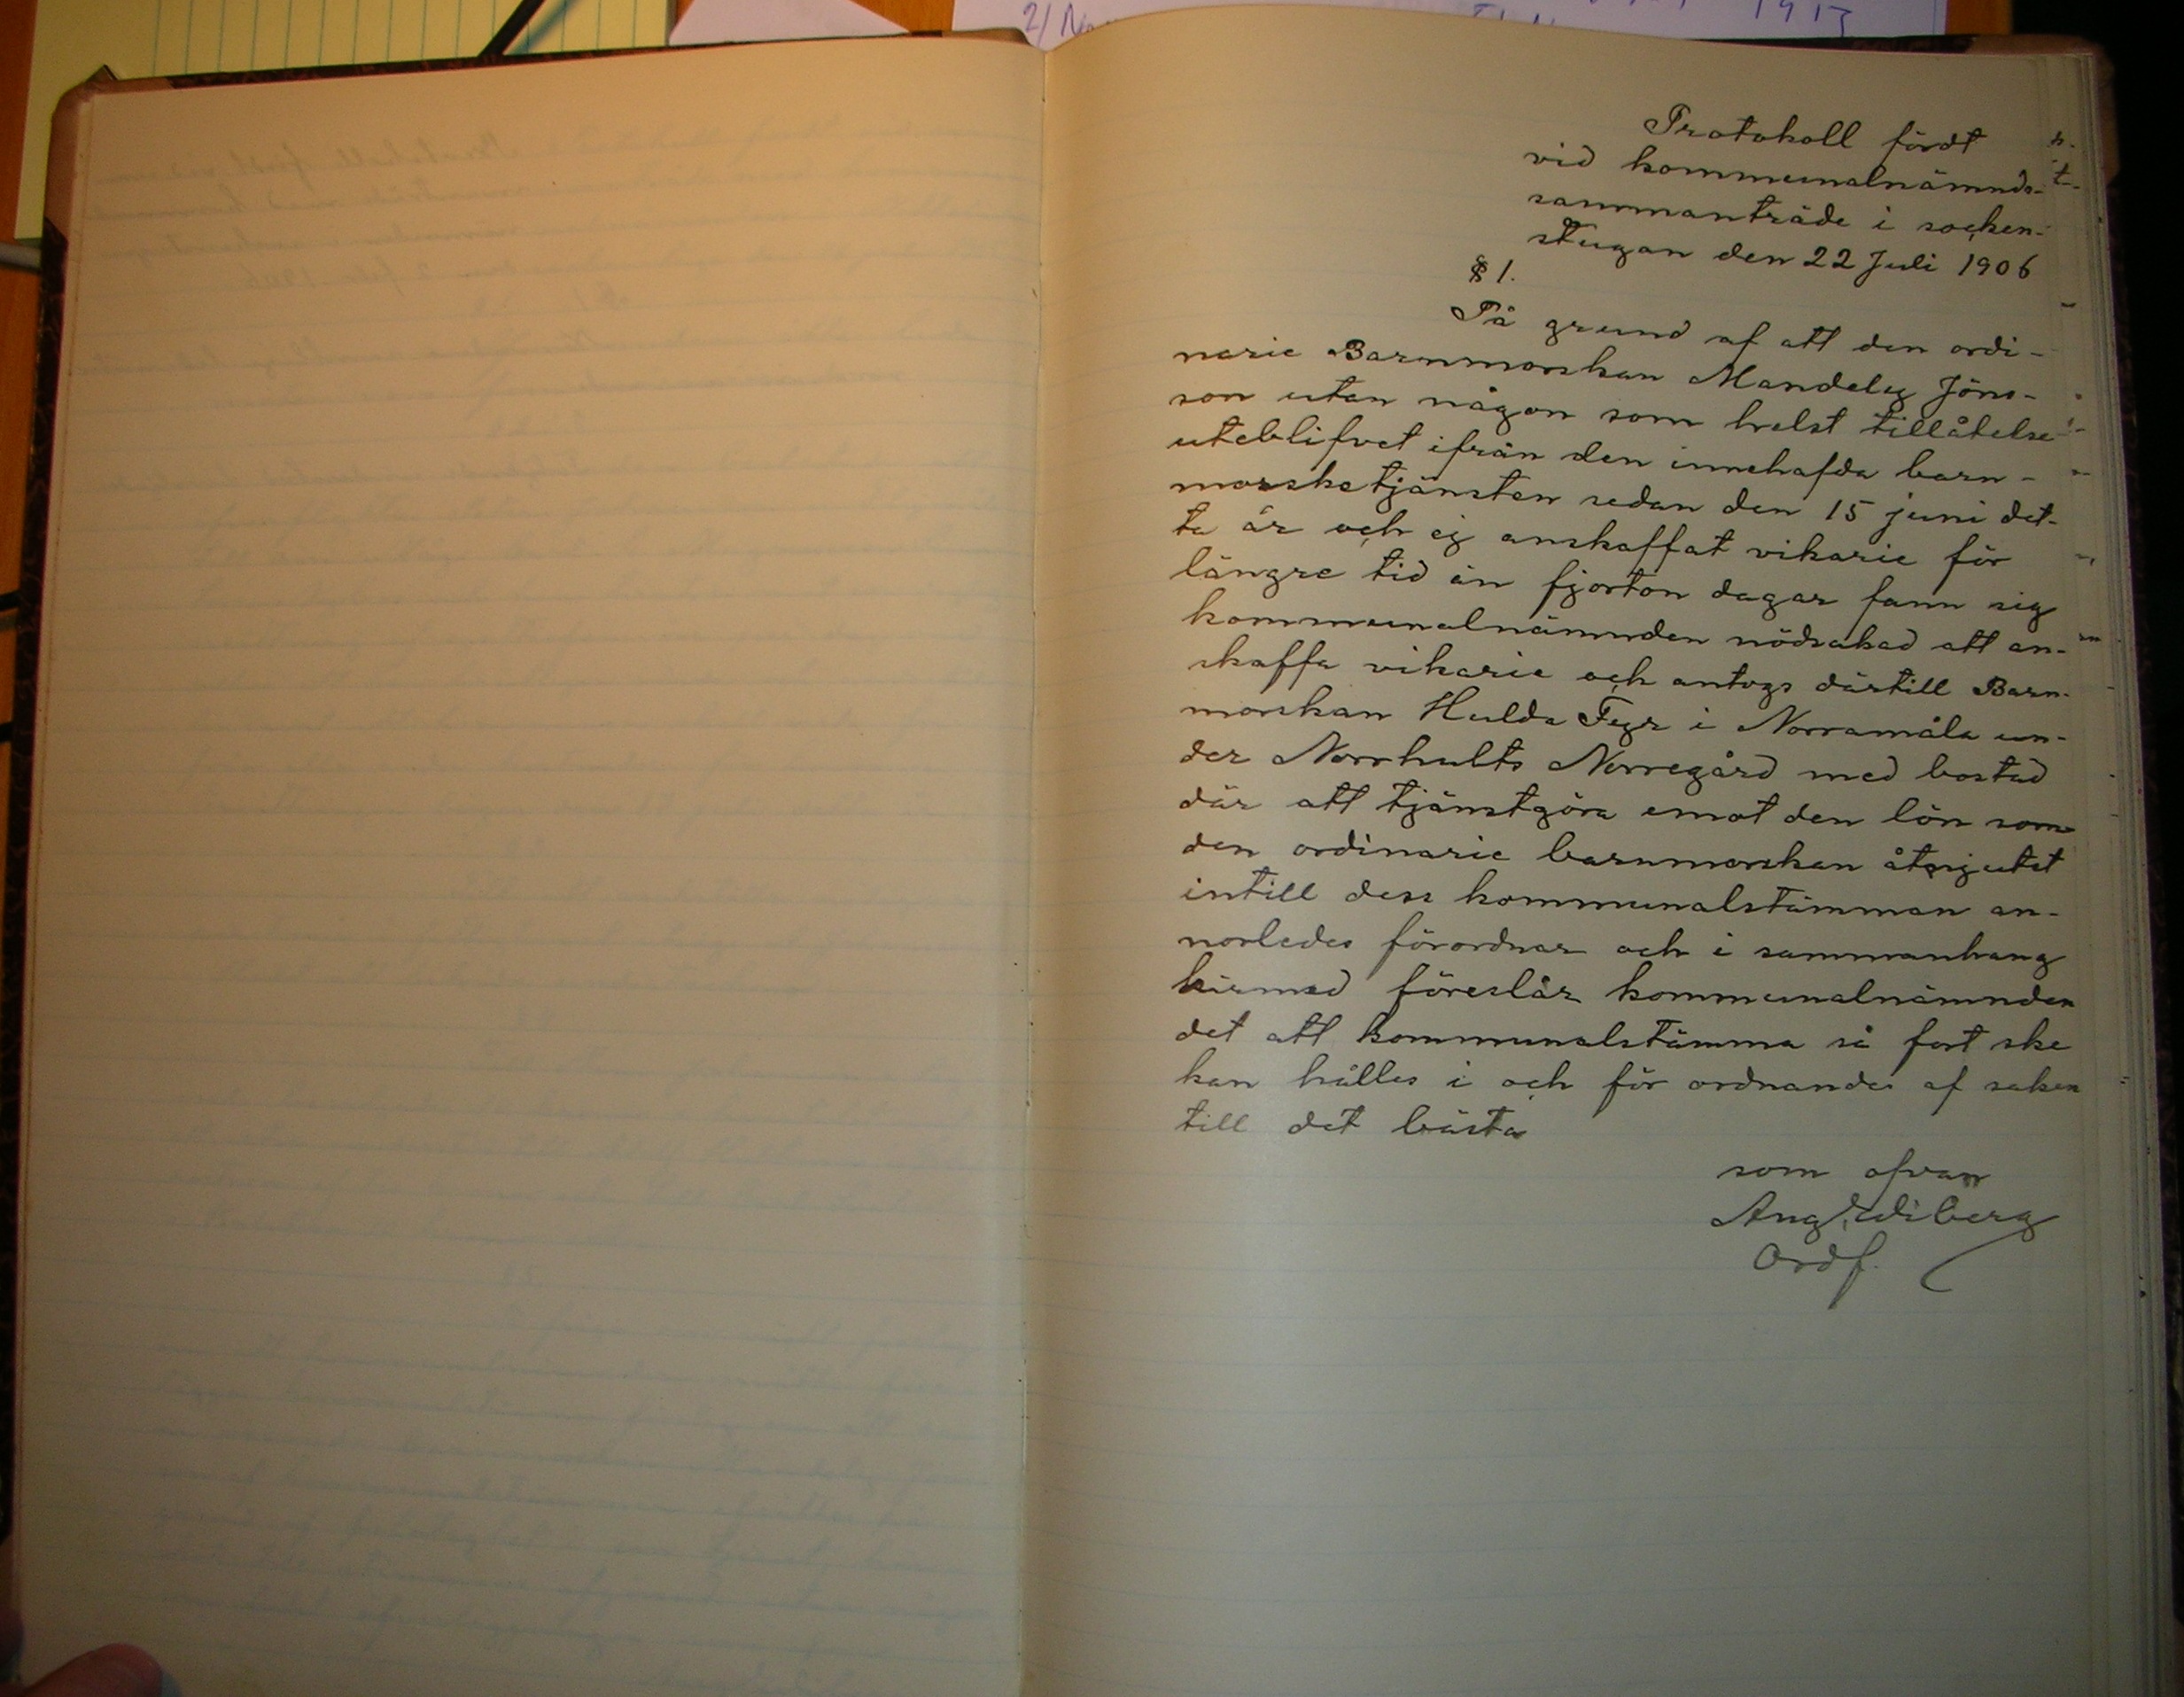 2/
1913
Protokoll fördt
vid kommunalnämnds-
sammanträde i socken-
stugan den 22 Juli 1906
§ 1.
På grund af att den ordi-
narie Barnmorskan Mandely Jöns-
son utan någon som helst tillåtelse
uteblifvet ifrån den innehafda barn-
morsketjänsten sedan den 15 juni det-
ta år och ej anskaffat vikarie för
längre tid än fjorton dagar fann sig
kommunalnämnden nödsakad att an-
skaffa vikarie och antogs därtill Barn-
morskan Hulda Fyr i Norramåla un-
der Norrhults Norregård med bostad
där att tjänstgöra emot den lön som
den ordinarie barnmorskan åtnjutet
intill dess kommunalstämman an-
norledes förordnar och i sammanhang
härmed föreslår kommunalnämnden
det att kommunalstämma så fort ske
kan hålles i och för ordnandes af saken
till det bästa
som ofvan
Aug Wiberg
Ordf.